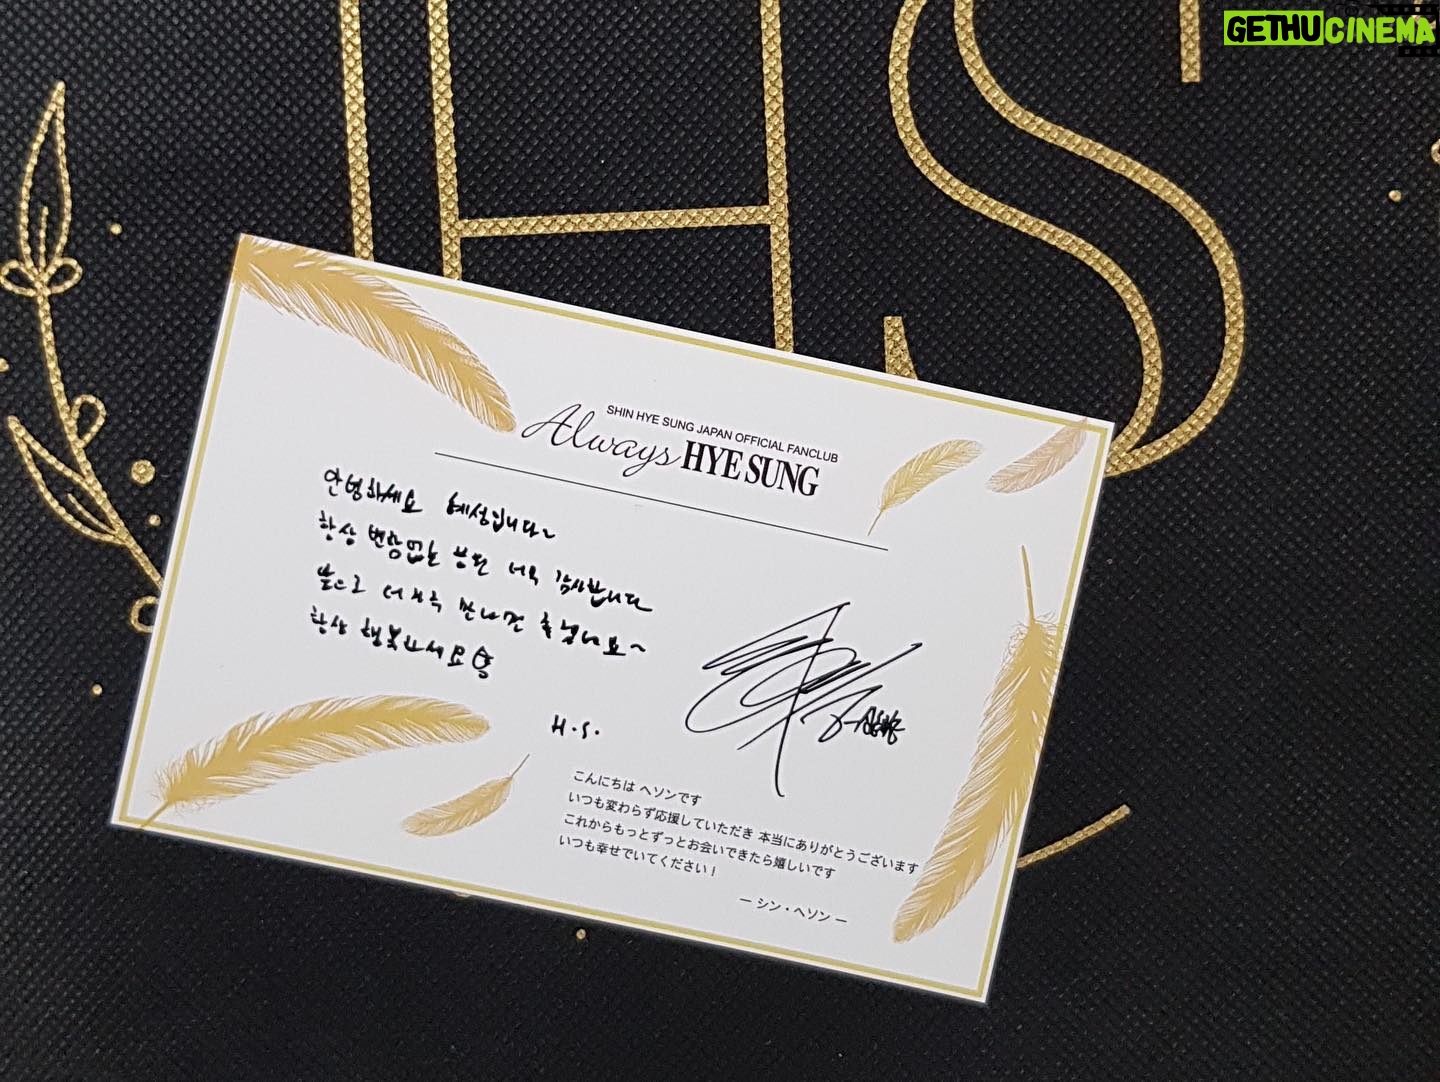 GETHUCINEMA
HS
SHIN HYE SUNG JAPAN OFFICIAL FANCLUB
Always HYE SUNG
안녕하세요 혜성입니다~
항상 변함없는 응원 너무 감사합니다
앞으로 더 자주 만나면 좋겠네요~
항상 행복하세요
H.S.
こんにちは ヘソンです
いつも変わらず応援していただき 本当にありがとうございます
これからもっとずっとお会いできたら嬉しいです
いつも幸せでいてください！
ー シン・ヘソン ー